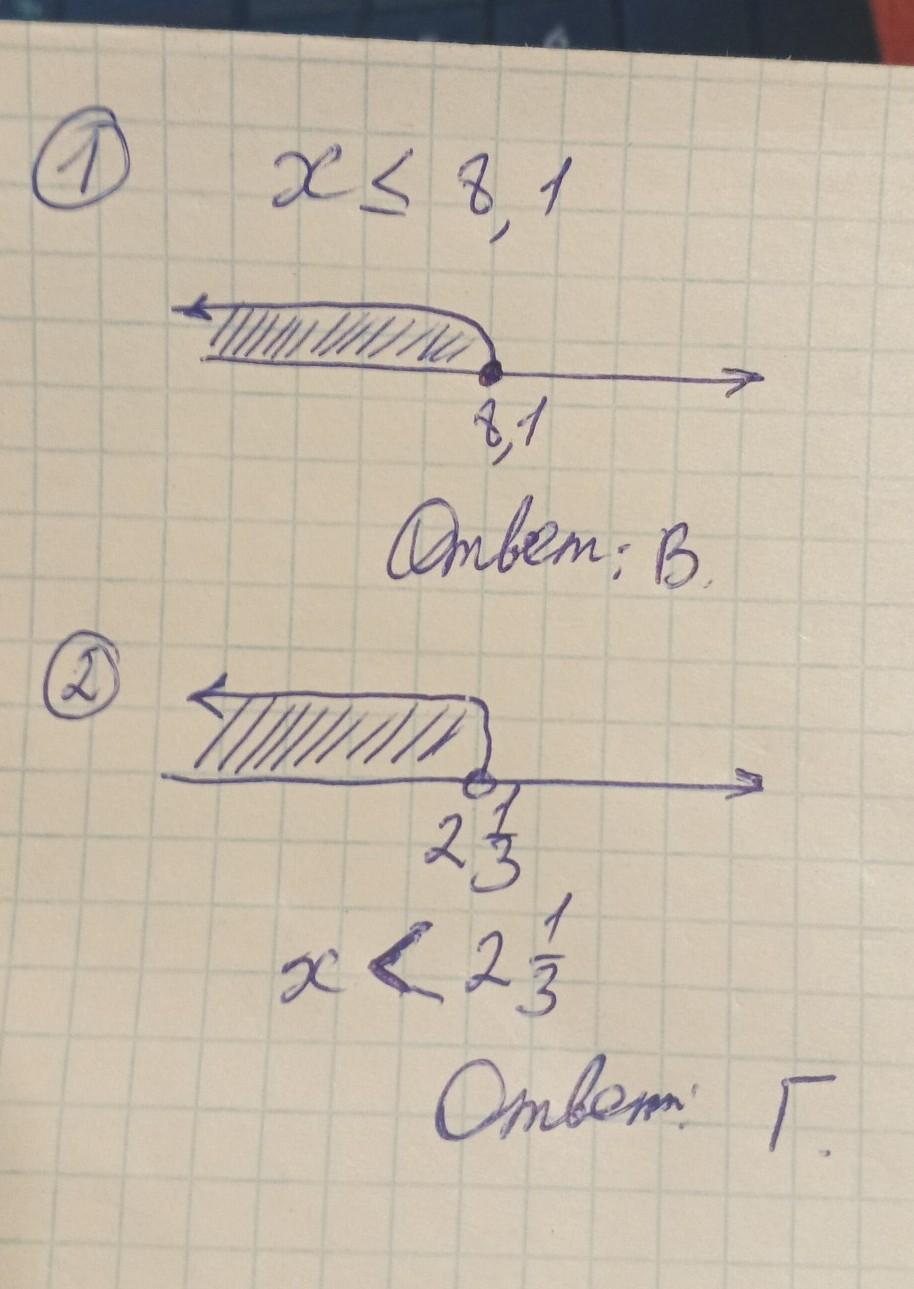 1
x ≤ 8,1
8,1
Ответ: В.
2
2 1/3
x < 2 1/3
Ответ: Г.